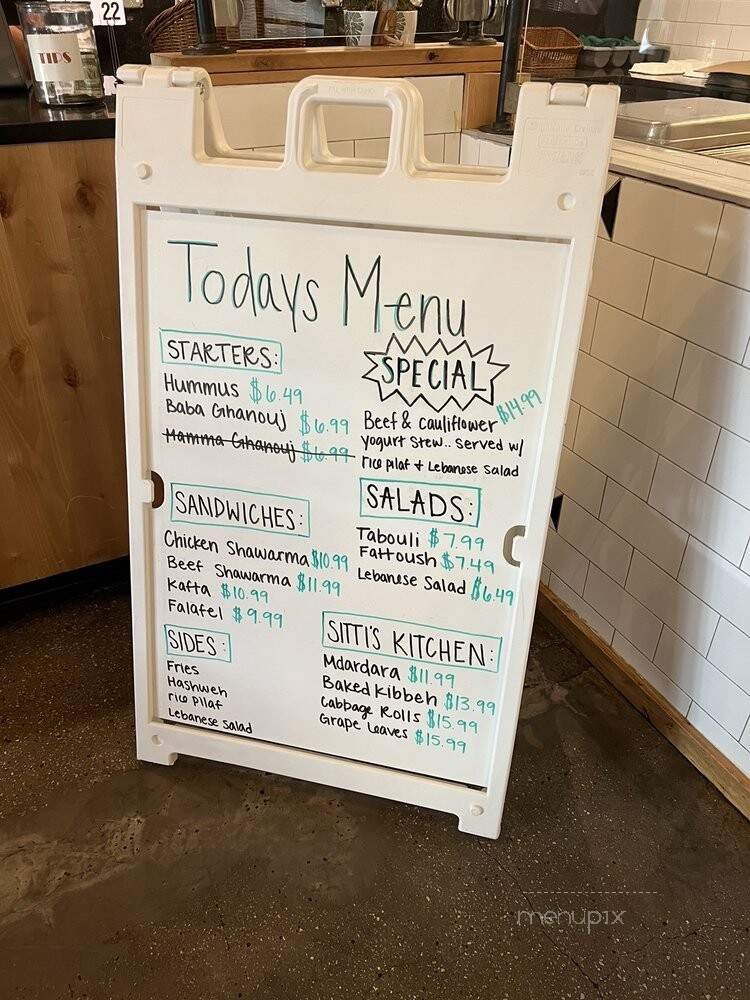 22
TIPS
Todays Menu
STARTERS:
Hummus $6.49
Baba Ghanouj $6.99
Mamma Ghanouj $6.99
SPECIAL
$14.99
Beef & cauliflower
yogurt stew.. served w/
rice pilaf + Lebanese salad
SANDWICHES:
Chicken Shawarma $10.99
Beef Shawarma $11.99
Kafta $10.99
Falafel $9.99
SALADS:
Tabouli $7.99
Fattoush $7.49
Lebanese Salad $6.49
SIDES:
Fries
Hashweh
rice pilaf
Lebanese salad
SITTI'S KITCHEN:
Mdardara $11.99
Baked Kibbeh $13.99
Cabbage Rolls $15.99
Grape Leaves $15.99
menupix